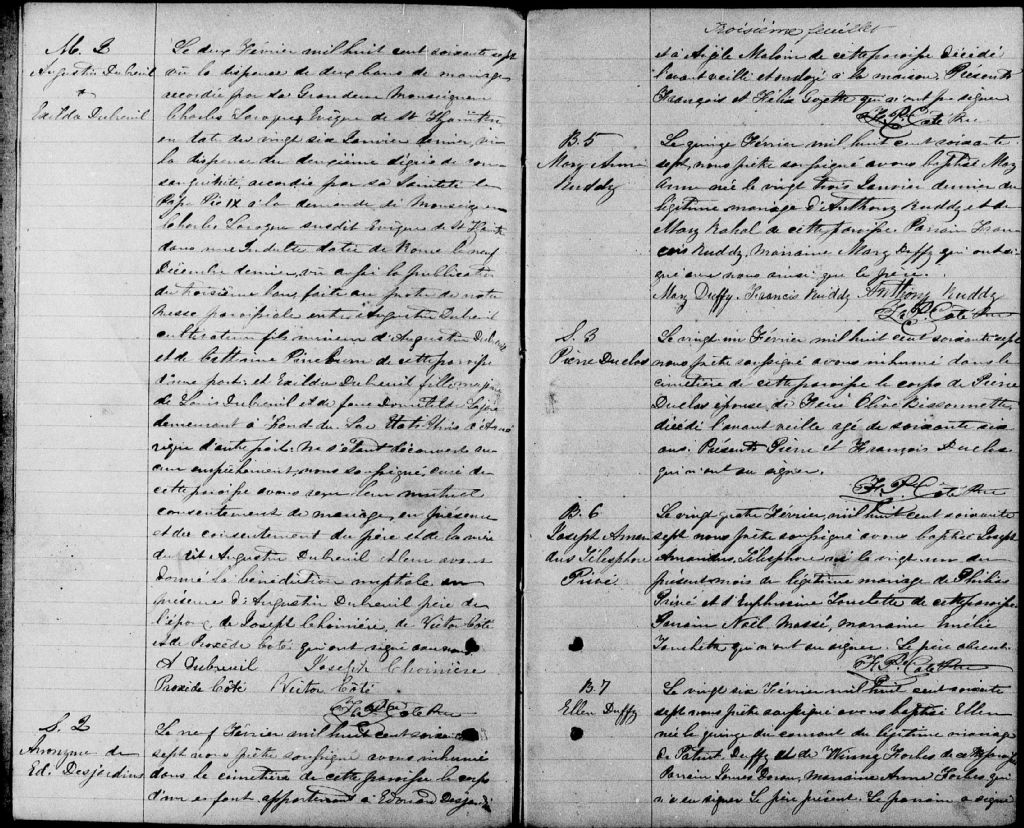 M. 2
Augustin Dubreuil
+
Exilda Dubreuil
Le deux Février mil huit cent soixante sept
vû la dispense de deux bans de mariage
accordée par sa Grandeur Monseigneur
Charles Larocque Evêque de St Hyacinthe
en date du vingt six Janvier dernier, vû
la dispense du deuxième dégré de con
sanguinité accordée par sa Sainteté le
Pape Pie IX à la demande de Monseigneur
Charles Larocque susdit Evêque de St Hyacinthe
dans une Indulte datée de Rome le neuf
Décembre dernier, vû aussi la publication
du troisième ban faite au prône de notre
Messe paroissiale entre Augustin Dubreuil
cultivateur fils mineur d'Augustin Dubreuil
et de de cette paroisse
d'une part: et Exilda Dubreuil fille mineure
de Louis Dubreuil et de feue Domitilde
demeurant à Fond du Lac Etats Unis d'Amé
rique d'autre part: Ne s'étant découvert au
cun empêchement, nous soussigné, curé de
cette paroisse avons reçu leur mutuel
consentement de mariage, en présence
et du consentement du père et de la mère
du dit Augustin Dubreuil et leur avons
donné la bénédiction nuptiale en
présence d'Augustin Dubreuil père de
l'époux de Joseph Choinière, de Victor Côté
et de Praxède Côté qui ont signé avec nous
A Dubreuil Joseph Choinière
Praxède Côté Victor Côté
F. P. Côté Ptre
S. 2
Anonyme de
Ed. Desjardins
Le neuf Février mil huit cent soixante
sept nous prêtre soussigné avons inhumé
dans le cimetière de cette paroisse le corps
d'un enfant appartenant à Edouard Desjardins
Troisième feuillet
et à Aigle Maloin de cette paroisse décédé
l'avant veille et ondoyé à la maison. Présents
François et Félix Goyette qui n'ont pu signer
F. P. Côté Ptre
B. 5
Mary Ann
Ruddy
Le quinze Février mil huit cent soixante
sept, nous prêtre soussigné avons baptisé Mary
Ann née le vingt trois Janvier dernier du
légitime mariage d'Anthony Ruddy et de
Mary Kahol de cette paroisse. Parrain Fran
cois Ruddy, marraine Mary Duffy qui ont si
gné avec nous ainsi que le père.
Mary Duffy. Francis Ruddy Anthony Ruddy
F. P. Côté Ptre
S. 3
Pierre Duclos
Le vingt un Février mil huit cent soixante sept
nous prêtre soussigné avons inhumé dans le
cimetière de cette paroisse le corps de Pierre
Duclos époux de Olive Bissonnette
décédé l'avant veille agé de soixante six
ans. Présents Pierre et François Duclos
qui n'ont su signer.
F. P. Côté Ptre
B. 6
Joseph Aman
dus Télesphore
Privé
Le vingt quatre Février, mil huit cent soixante
sept nous prêtre soussigné avons baptisé Joseph
Amandus, Télesphore né le vingt un du
présent mois du légitime mariage de Philias
Privé et d'Euphrosine Touchette de cette paroisse
Parrain Noël Massé, marraine Emélie
Touchette qui n'ont su signer. Le père absent.
F. P. Côté Ptre
B. 7
Ellen Duffy
Le vingt six Février mil huit cent soixante
sept nous prêtre soussigné avons baptisé Ellen
née le quinze du courant du légitime mariage
de Patrick Duffy et de Winny Forbes de cette paroisse
Parrain James Doran, marraine Anne Forbes qui
n'a su signer Le père présent. Le parrain a signé